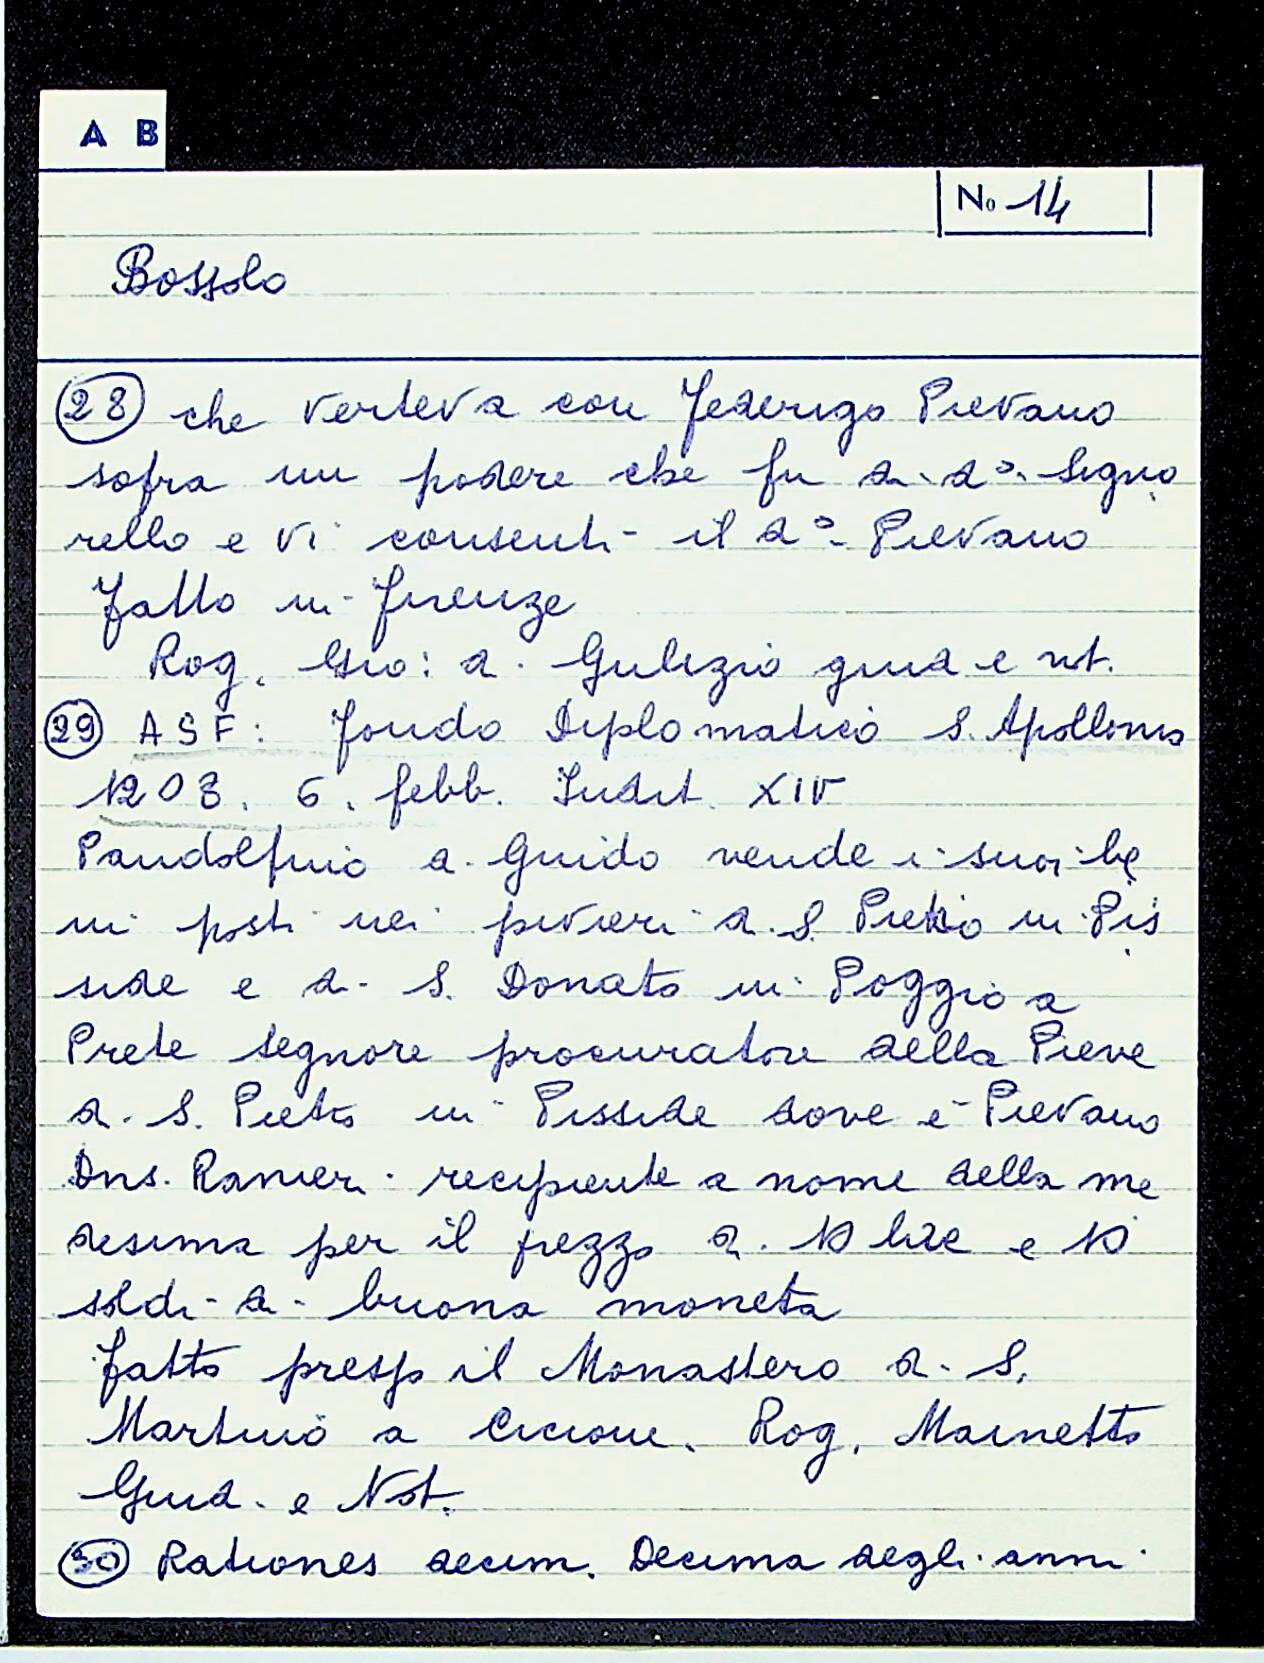 A B
No 14
Bossolo
28 che verteva con Federigo Pievano
sopra un podere che fu di do Signo
rello e vi consenti il do Pievano
fatto in Firenze
Rog. Gio: di Gulizio giud e not.
29 ASF: Fondo Diplomatico S. Apollonia
1203. 6. febb. Indit. XIV
Pandolfino di Guido vende i suoi be
ni posti nei pivieri di S. Pietro in Pis
side e di S. Donato in Poggio a
Prete Segnore procuratore della Pieve
di S. Pietro in Pisside dove è Pievano
Dns. Ranieri recipiente a nome della me
desima per il prezzo di lire e
soldi di buona moneta
fatto presso il Monastero di S.
Martino a Cicione. Rog. Mainetto
Giud. e Not.
30 Rationes decim. Decima degli anni